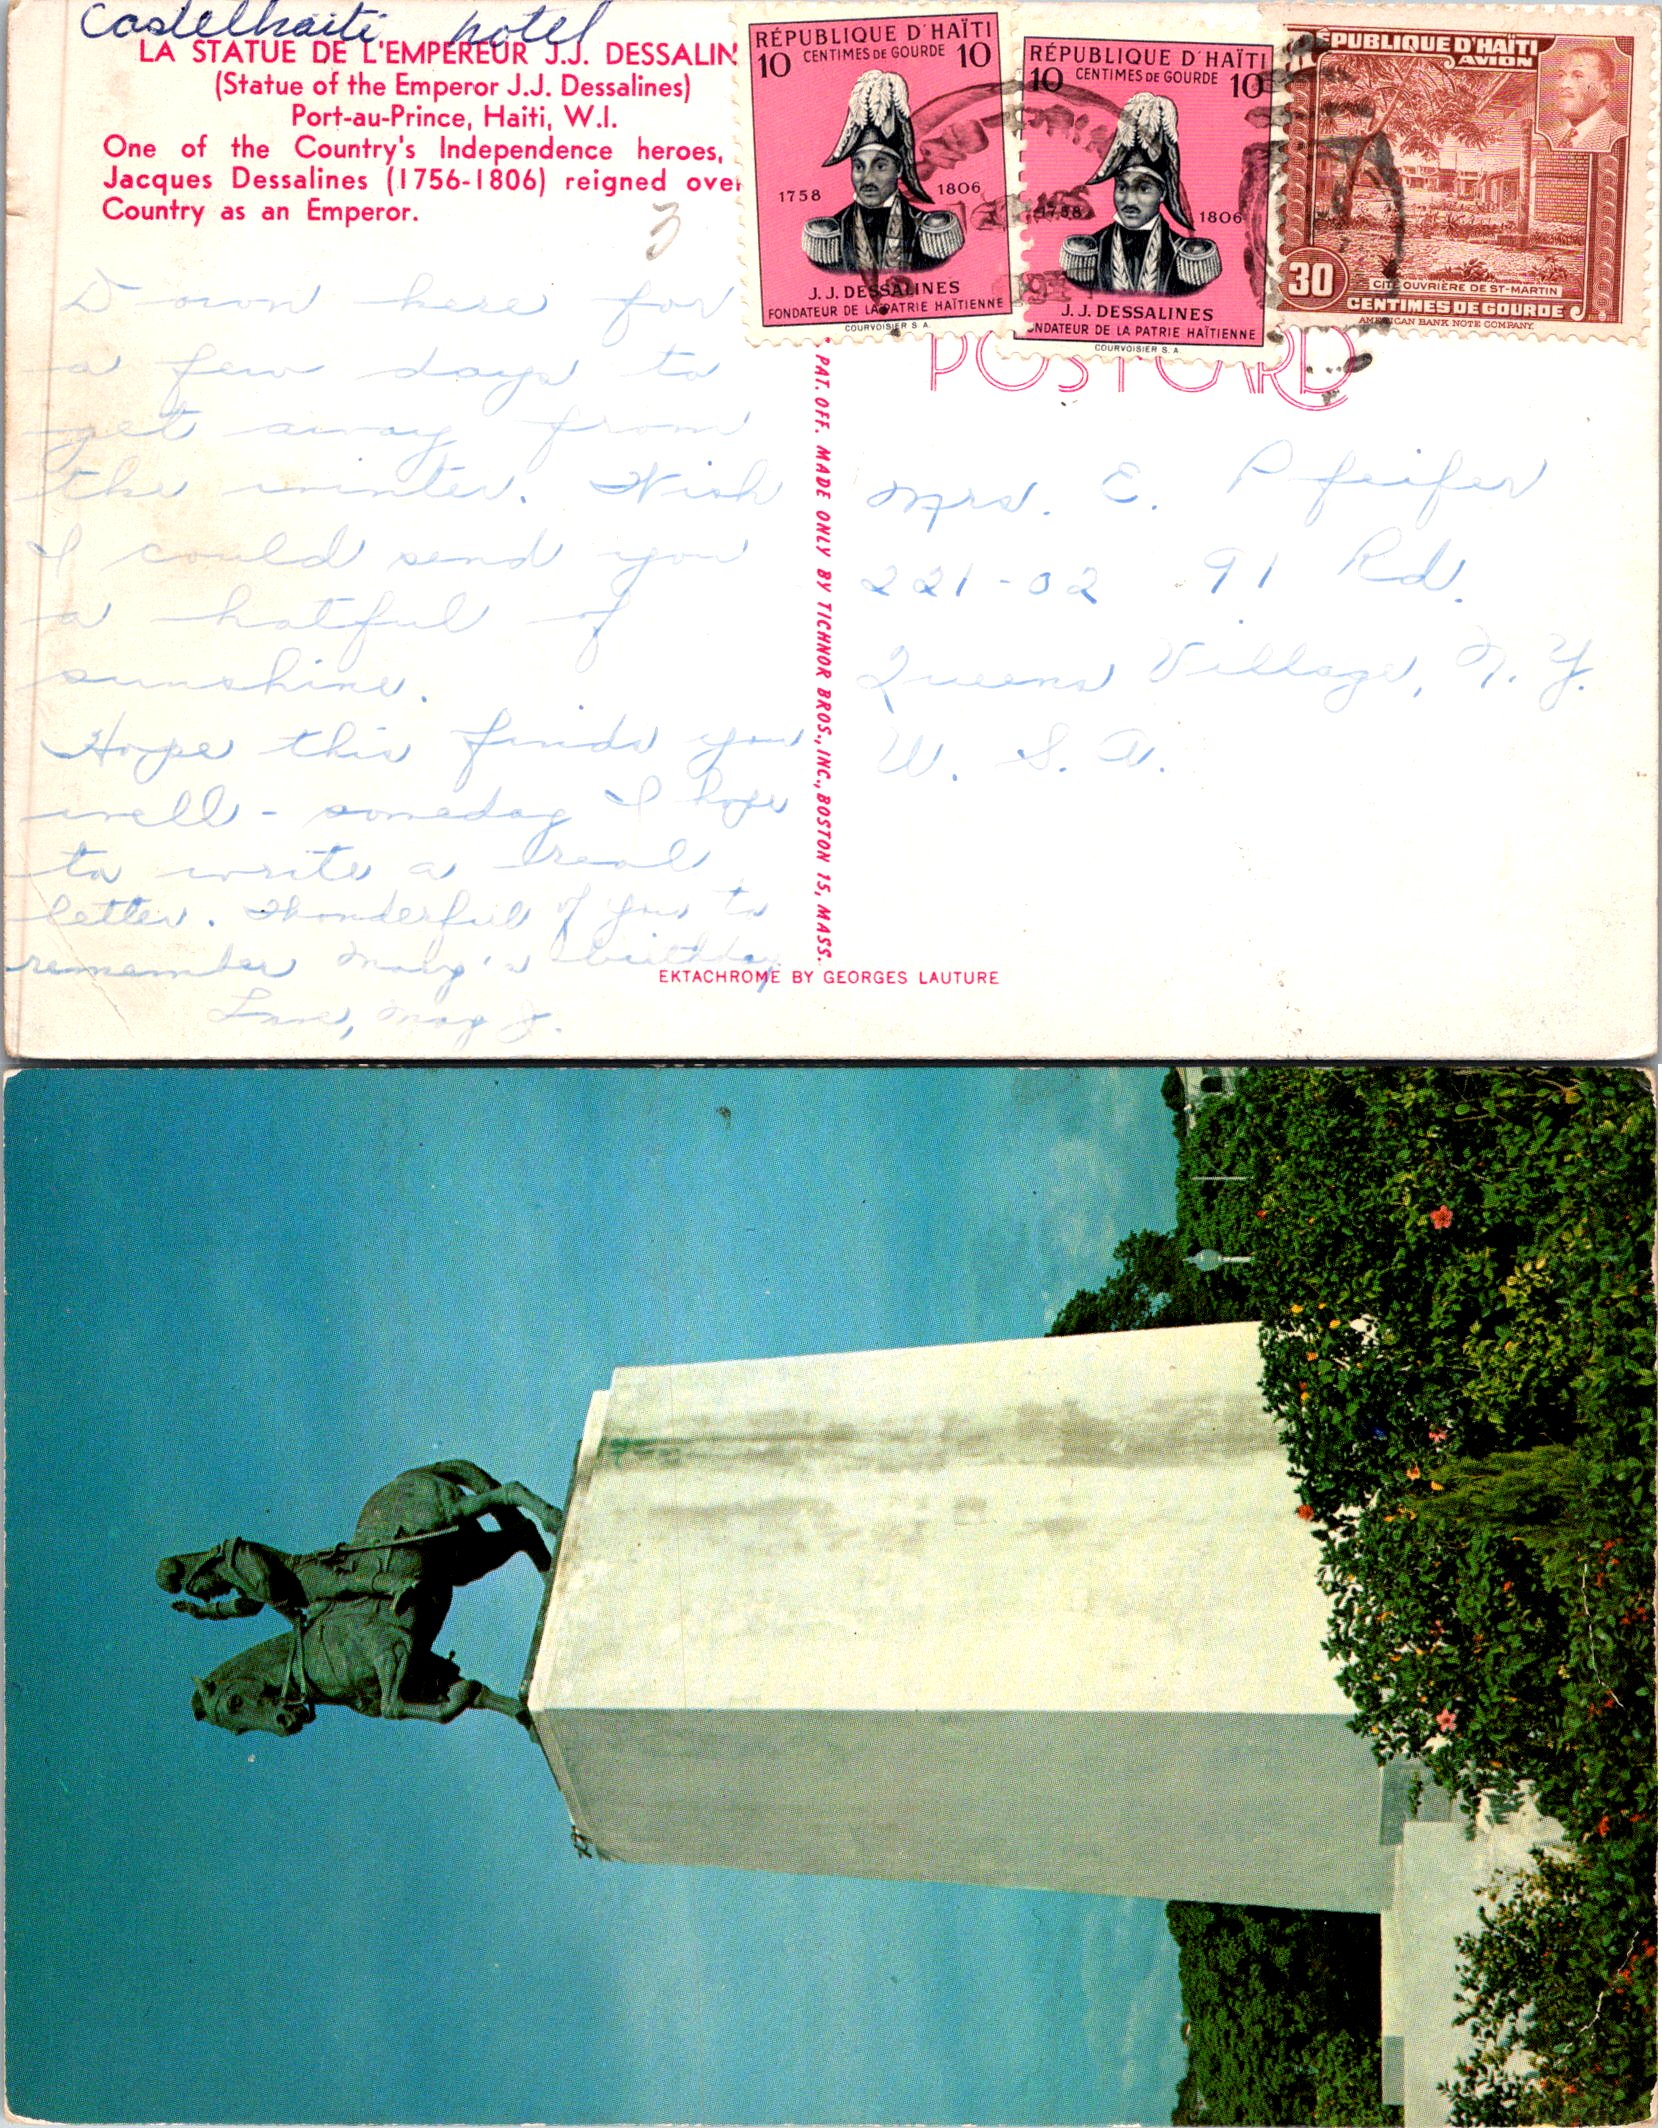 Castelhaiti hotel
LA STATUE DE L'EMPEREUR J.J. DESSALIN
(Statue of the Emperor J.J. Dessalines)
Port-au-Prince, Haiti, W.I.
One of the Country's Independence heroes,
Jacques Dessalines (1756-1806) reigned over
Country as an Emperor.
3
Down here for
a few days to
get away from
the winter. Wish
I could send you
a hatful of
sunshine.
Hope this finds you
well - someday I hope
to write a real
letter. Wonderful of you to
remember Mary's birthday
Love, May J.
RÉPUBLIQUE D'HAÏTI
10 CENTIMES DE GOURDE 10
1758 1806
J.J. DESSALINES
FONDATEUR DE LA PATRIE HAÏTIENNE
COURVOISIER S.A.
RÉPUBLIQUE D'HAÏTI
10 CENTIMES DE GOURDE 10
1758 1806
J.J. DESSALINES
ONDATEUR DE LA PATRIE HAÏTIENNE
COURVOISIER S.A.
RÉPUBLIQUE D'HAÏTI
AVION
CITÉ OUVRIÈRE DE ST-MARTIN
30 CENTIMES DE GOURDE
AMERICAN BANK NOTE COMPANY.
POSTCARD
PAT. OFF. MADE ONLY BY TICHNOR BROS., INC., BOSTON 15, MASS.
Mrs. E. Pfeifer
221-02 91 Rd.
Queens Village, N.Y.
U.S.A.
EKTACHROME BY GEORGES LAUTURE